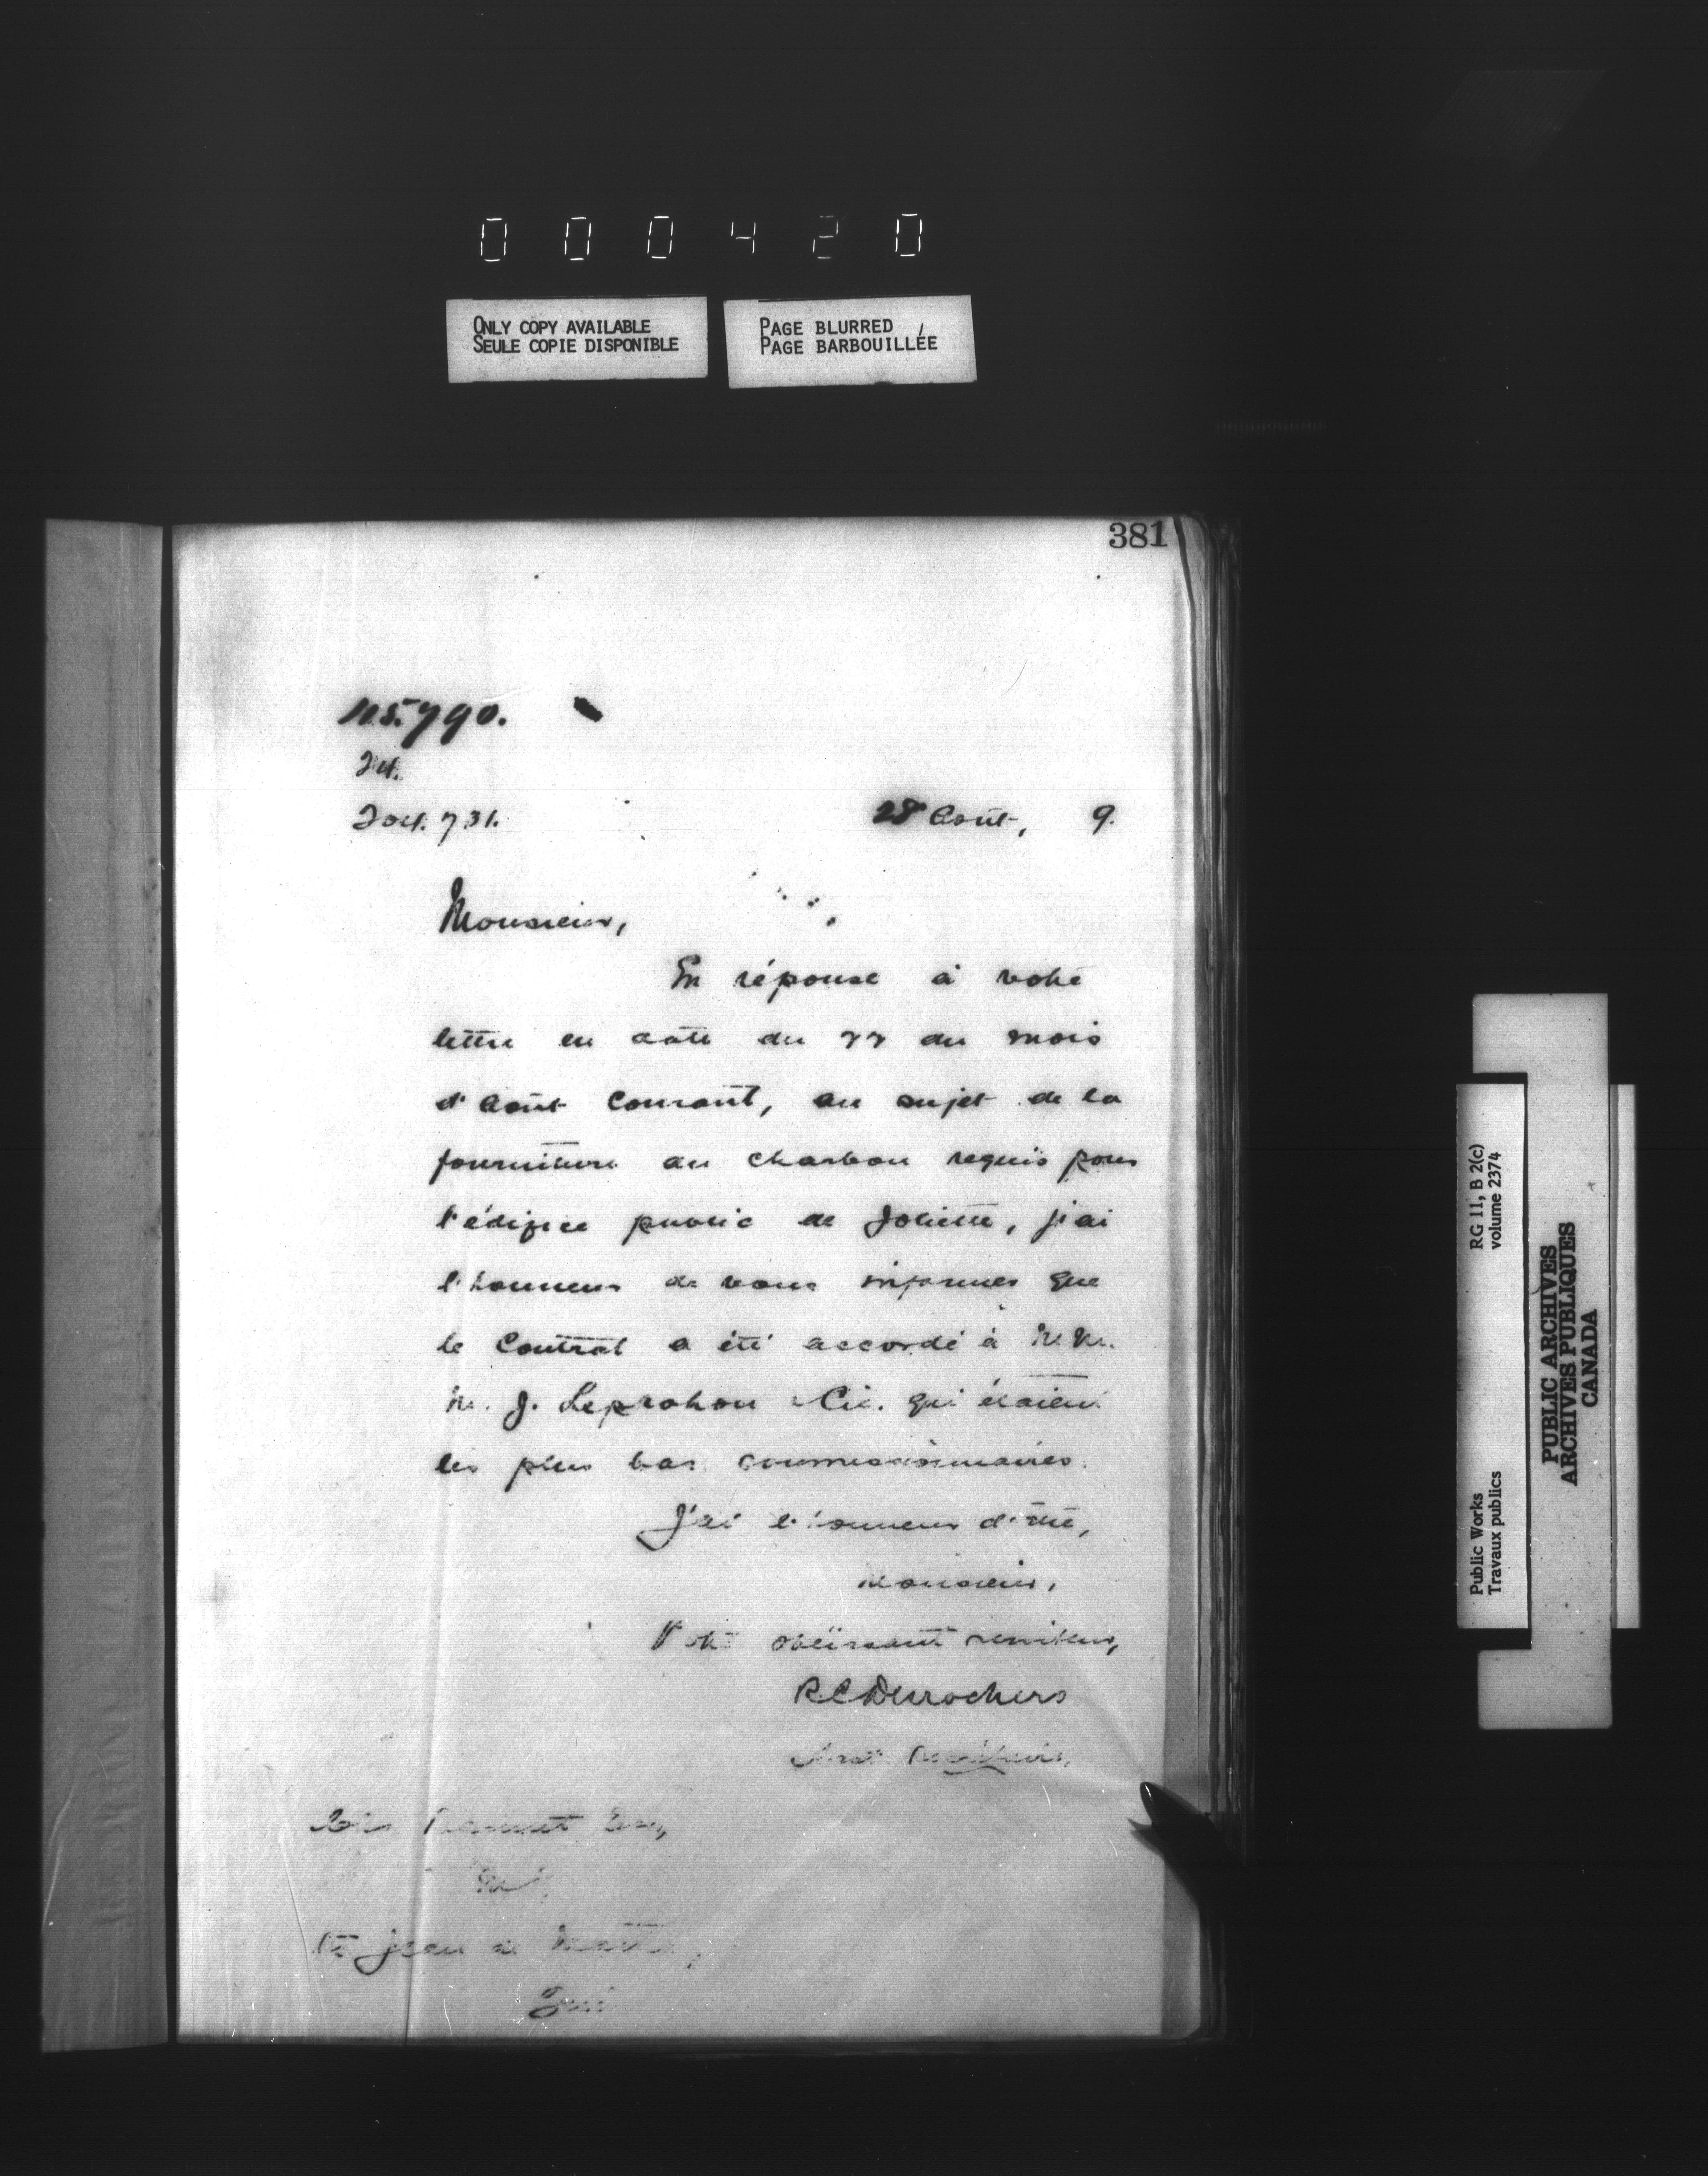 000420
ONLY COPY AVAILABLE
SEULE COPIE DISPONIBLE
PAGE BLURRED
PAGE BARBOUILLÉE
381
115.790.
731.
28 Août, 9.
Monsieur,
En réponse à votre
lettre en date du 22 du mois
d'Août courant, au sujet de la
fourniture du charbon requis pour
l'édifice public de Joliette, j'ai
l'honneur de vous informer que
le Contrat a été accordé à M.M.
M. J. Leprohon & Cie. qui étaient
les plus bas soumissionnaires.
J'ai l'honneur d'être,
Monsieur,
Votre obéissant serviteur,
R C Desrochers
Asst Secrétaire,
Esq,
St Jean de Matha,
Qué
RG 11, B 2(c)
volume 2374
Public Works
Travaux publics
PUBLIC ARCHIVES
ARCHIVES PUBLIQUES
CANADA